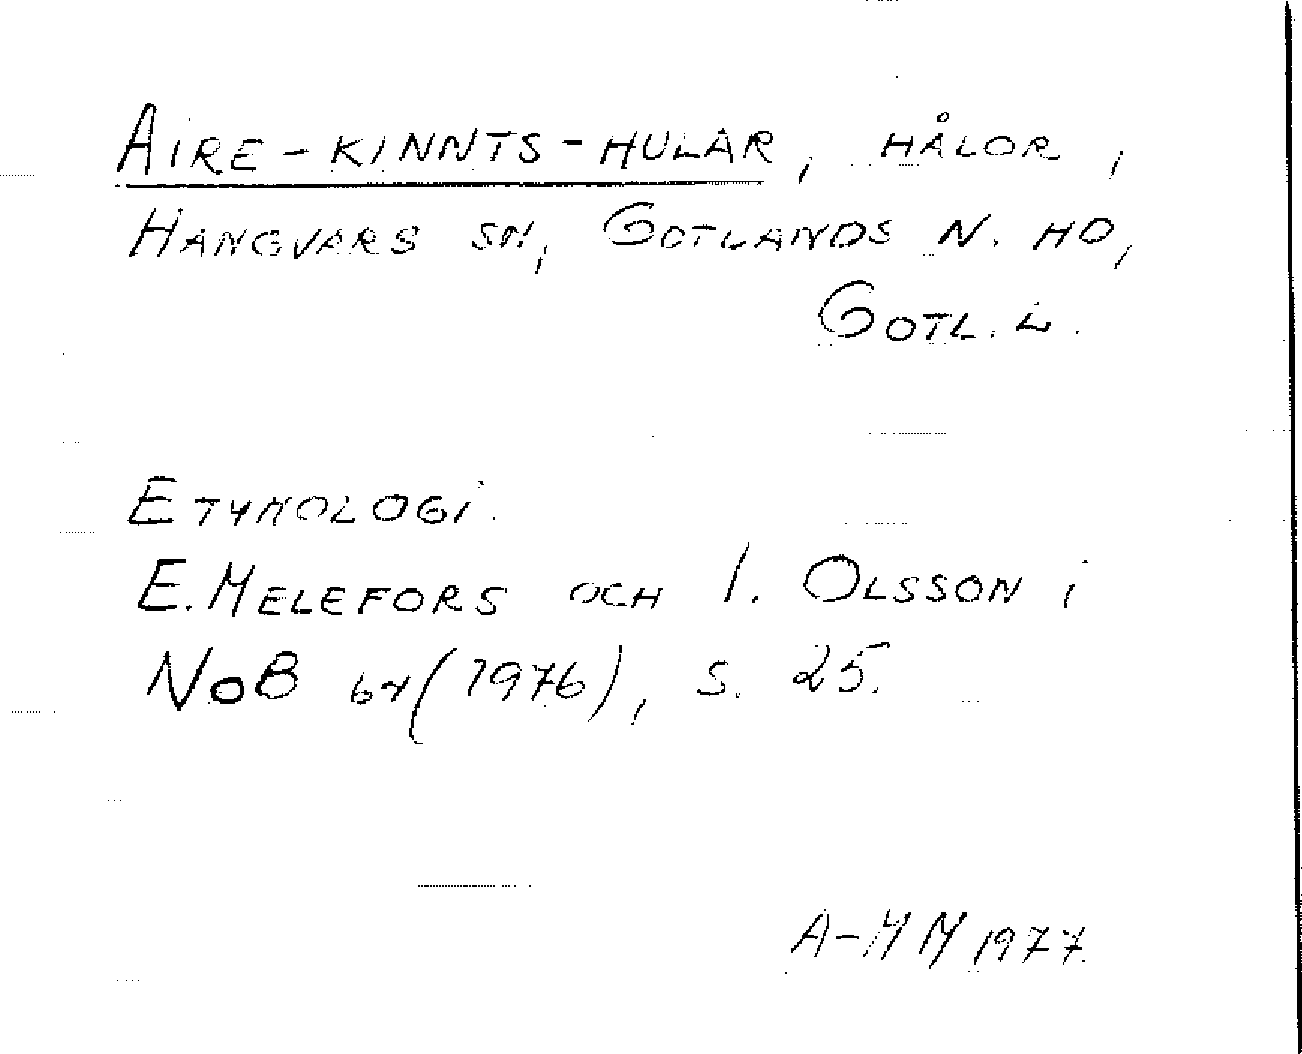 AIRE-KINNTS-HULAR, HÅLOR,
HANGVARS SN, GOTLANDS N. HD,
GOTL. L.
ETYMOLOGI.
E. MELEFORS OCH I. OLSSON i
NoB 64 (1976), S. 25.
A-MM 1977